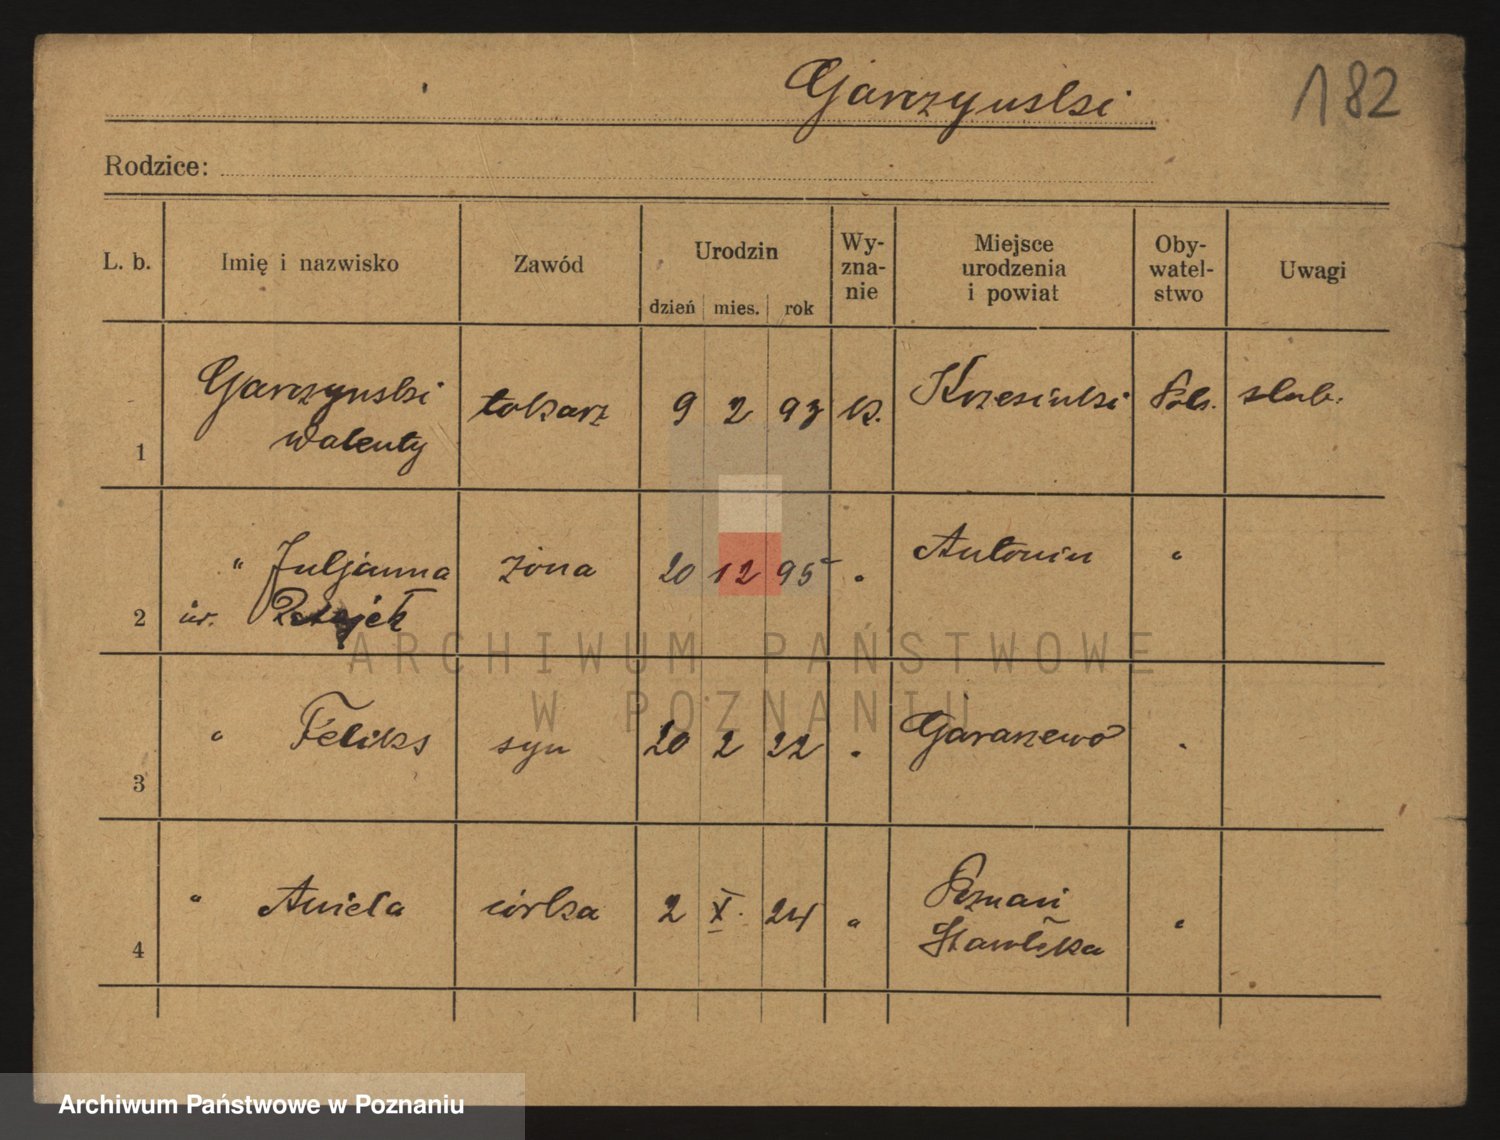 Garczynski
182
Rodzice:
L. b. Imię i nazwisko Zawód Urodzin dzień mies. rok Wy-zna-nie Miejsce urodzenia i powiat Oby-watel-stwo Uwagi
1 Garczynski Walenty tokarz 9 2 93 k. Krzesinki Pols. slub.
2 " Juljanna żona 20 12 95 " Antonin "
ur.
3 " Feliks syn 20 2 22 " Garaszewo "
4 " Aniela córka 2 X. 24 " Poznań "
ARCHIWUM PAŃSTWOWE
W POZNANIU
Archiwum Państwowe w Poznaniu